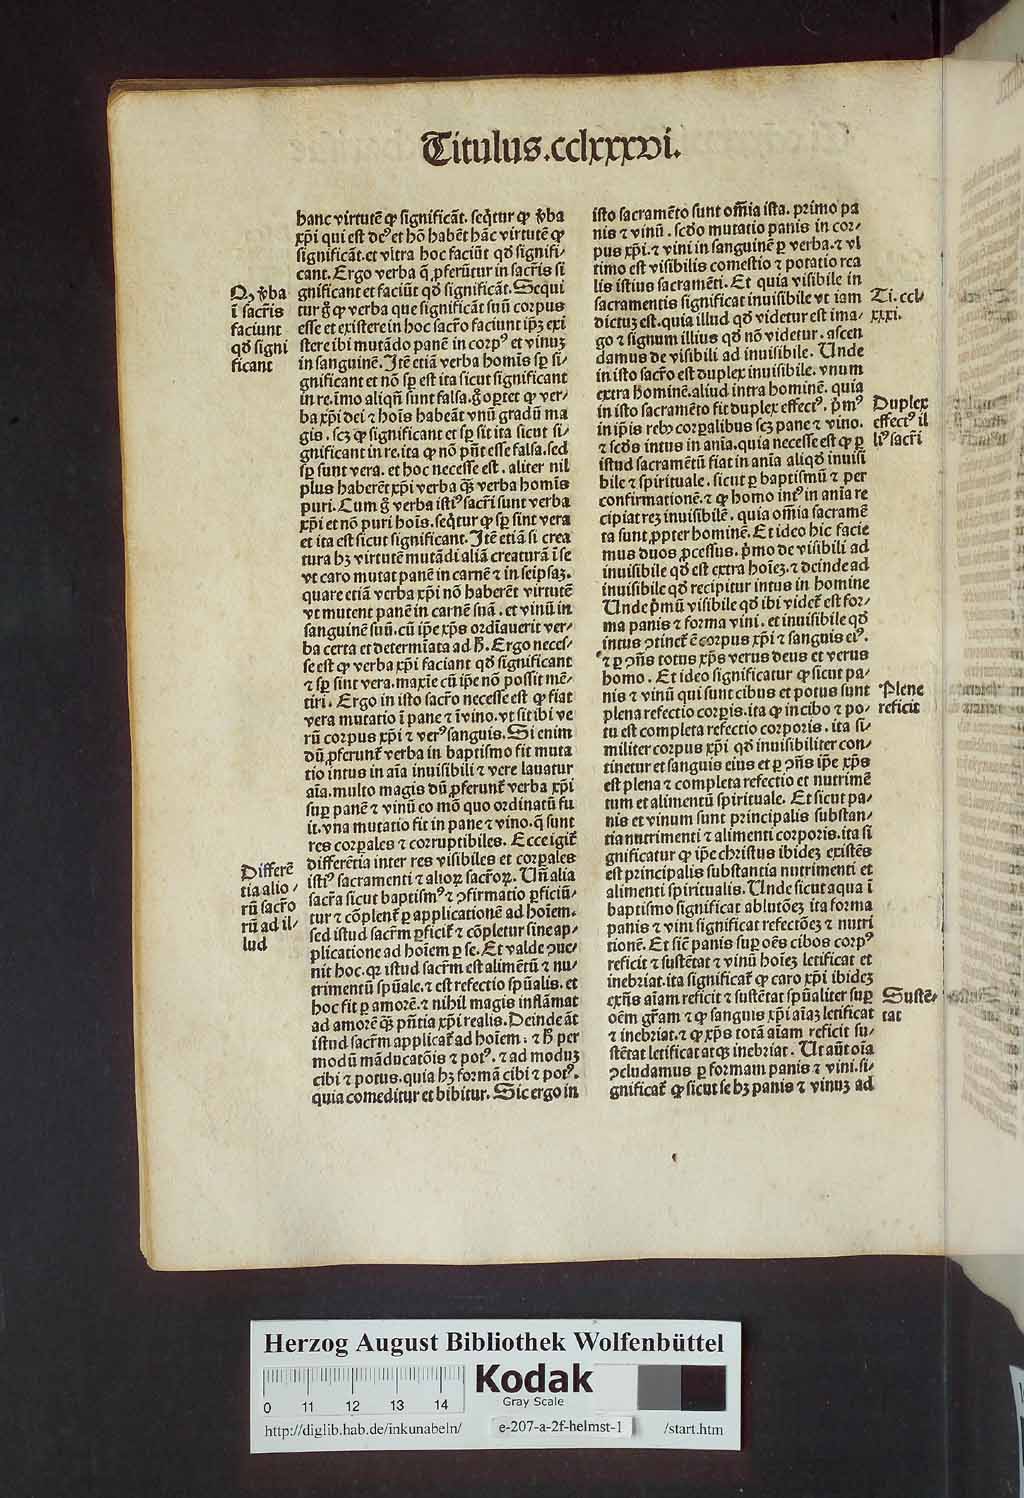 Titulus.cclxxxvi.
hanc virtutē ꝙ significāt. seq̄tur ꝙ v̄ba
xp̄i qui est deꝰ et hō habēt hāc virtutē ꝙ
significāt. et vltra hoc faciūt qd̄ signifi⸗
cant. Ergo verba q̄ ꝓferūtur in sacr̄is si
gnificant et faciūt qd̄ significāt. Sequi
tur g̊ ꝙ verba que significāt suū corpus
esse et existere in hoc sacr̄o faciunt ip̄ꝫ exi
stere ibi mutādo panē in corpꝰ et vinuꝫ
in sanguinē. Itē etiā verba homīs sp̄ si⸗
gnificant et nō sp̄ est ita sicut significant
in re. īmo aliqn̄ sunt falsa. g̊ oꝑtet ꝙ ver⸗
ba xp̄i dei ⁊ hoīs habeāt vnū gradū ma
gis. scꝫ ꝙ significant et sp̄ sit ita sicut si⸗
gnificant in re. ita ꝙ nō pn̄t esse falsa. sed
sp̄ sunt vera. et hoc necesse est. aliter nil
plus haberēt xp̄i verba q̄ꝫ verba homīs
puri. Cum g̊ verba istiꝰ sacr̄i sunt verba
xp̄i et nō puri hoīs. seq̄tur ꝙ sp̄ sint vera
et ita est sicut significant. Itē etiā si crea
tura hꝫ virtutē mutādi aliā creaturā ī se
vt caro mutat panē in carnē ⁊ in seipsaꝫ.
quare etiā verba xp̄i nō haberēt virtutē
vt mutent panē in carnē suā. et vinū in
sanguinē suū. cū ip̄e xp̄s ordīauerit ver⸗
ba certa et determīata ad h̄. Ergo neces⸗
se est ꝙ verba xp̄i faciant qd̄ significant
⁊ sp̄ sint vera. maxīe cū ip̄e nō possit mē⸗
tiri. Ergo in isto sacr̄o necesse est ꝙ fiat
vera mutatio ī pane ⁊ ī vino. vt sit ibi ve
rū corpus xp̄i ⁊ verꝰ sanguis. Si enim
dū ꝓferunt̄ verba in baptismo fit muta
tio intus in aīa inuisibili ⁊ vere lauatur
aīa. multo magis dū ꝓferunt̄ verba xp̄i
suꝑ panē ⁊ vinū eo mō quo ordinatū fu
it. vna mutatio fit in pane ⁊ vino. q̄ sunt
res corꝑales ⁊ corruptibiles. Ecce igit̄
differētia inter res visibiles et corꝑales
istiꝰ sacramenti ⁊ alioꝝ sacr̄oꝝ. Un̄ alia
sacr̄a sicut baptismꝰ ⁊ ꝯfirmatio ꝑficiū⸗
tur ⁊ cōplent̄ ꝑ applicationē ad hoīem.
sed istud sacr̄m ꝑficit̄ ⁊ cōpletur sine ap⸗
plicatione ad hoīem ꝑ se. Et valde ꝯue⸗
nit hoc. qꝛ istud sacr̄m est alimētū ⁊ nu⸗
trimentū spūale. ⁊ est refectio spūalis. et
hoc fit ꝑ amorē. ⁊ nihil magis inflāmat
ad amorē q̄ꝫ pn̄tia xp̄i realis. Deinde āt
istud sacr̄m applicat̄ ad hoīem: ⁊ h̄ per
modū māducatōis ⁊ potꝰ. ⁊ ad moduꝫ
cibi ⁊ potus. quia hꝫ formā cibi ⁊ potꝰ.
quia comeditur et bibitur. Sic ergo in
Qꝫ v̄ba
ī sacr̄is
faciunt
qd̄ signi
ficant
Differē
tia alio⸗
rū sacr̄o
rū ad il⸗
lud
isto sacramēto sunt om̄ia ista. primo pa
nis ⁊ vinū. scd̄o mutatio panis in cor⸗
pus xp̄i. ⁊ vini in sanguinē ꝑ verba. ⁊ vl
timo est visibilis comestio ⁊ potatio rea
lis istius sacramēti. Et quia visibile in
sacramentis significat inuisibile vt iam
dictuꝫ est. quia illud qd̄ videtur est ima⸗
go ⁊ signum illius qd̄ nō videtur. ascen
damus de visibili ad inuisibile. Unde
in isto sacr̄o est duplex inuisibile. vnum
extra hominē. aliud intra hominē. quia
in isto sacramēto fit duplex effectꝰ. p̄mꝰ
in ip̄is rebꝰ corꝑalibus scꝫ pane ⁊ vino.
⁊ scd̄s intus in anīa. quia necesse est ꝙ ꝑ
istud sacramētū fiat in anīa aliqd̄ inuisi
bile ⁊ spirituale. sicut ꝑ baptismū ⁊ per
confirmationē. ⁊ ꝙ homo intꝰ in anīa re
cipiat reꝫ inuisibilē. quia om̄ia sacramē
ta sunt ꝓpter hominē. Et ideo hic facie
mus duos ꝓcessus. p̄mo de visibili ad
inuisibile qd̄ est extra hoīeꝫ. ⁊ deinde ad
inuisibile qd̄ recipitur intus in homine
Unde p̄mū visibile qd̄ ibi videt̄ est for⸗
ma panis ⁊ forma vini. et inuisibile qd̄
intus ꝯtinet̄ ē corpus xp̄i ⁊ sanguis eiꝰ.
⁊ ꝑ ꝯn̄s totus xp̄s verus deus et verus
homo. Et ideo significatur ꝙ sicut pa⸗
nis ⁊ vinū qui sunt cibus et potus sunt
plena refectio corꝑis. ita ꝙ in cibo ⁊ po⸗
tu est completa refectio corporis. ita si⸗
militer corpus xp̄i qd̄ inuisibiliter con⸗
tinetur et sanguis eius et ꝑ ꝯn̄s ip̄e xp̄s
est plena ⁊ completa refectio et nutrimē
tum et alimentū spirituale. Et sicut pa⸗
nis et vinum sunt principalis substan⸗
tia nutrimenti ⁊ alimenti corporis. ita si
gnificatur ꝙ ip̄e christus ibideꝫ existēs
est principalis substantia nutrimenti et
alimenti spiritualis. Unde sicut aqua ī
baptismo significat ablutōeꝫ ita forma
panis ⁊ vini significat refectōeꝫ ⁊ nutri
tionē. Et sic̄ panis suꝑ oēs cibos corpꝰ
reficit ⁊ sustētat ⁊ vinū hoīeꝫ letificat et
inebriat. ita significat̄ ꝙ caro xp̄i ibideꝫ
exn̄s aīam reficit ⁊ sustētat spūaliter suꝑ
oēm gr̄am ⁊ ꝙ sanguis xp̄i aīaꝫ letificat
⁊ inebriat. ⁊ ꝙ xp̄s totā aīam reficit su⸗
stētat letificat atqꝫ inebriat. Ut aūt oīa
ꝯcludamus ꝑ formam panis ⁊ vini. si⸗
gnificat̄ ꝙ sicut se hꝫ panis ⁊ vinuꝫ ad
Ti. ccl⸗
xxxi.
Duplex
effectꝰ il
liꝰ sacr̄i
Plene
reficit
Sustē⸗
tat
Herzog August Bibliothek Wolfenbüttel
Kodak
Gray Scale
0 11 12 13 14
http://diglib.hab.de/inkunabeln/ e-207-a-2f-helmst-1 /start.htm